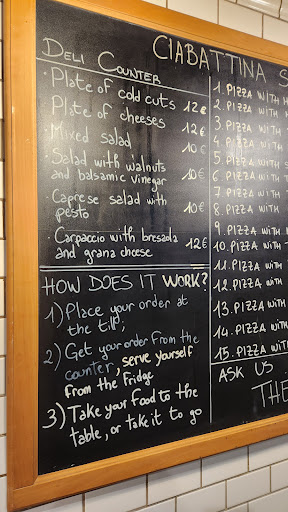 CIABATTINA S
DELI COUNTER
· Plate of cold cuts 12€
· Plate of cheeses 12€
· Mixed salad 10€
· Salad with walnuts
and balsamic vinegar 10€
· Caprese salad with
pesto 10€
· Carpaccio with bresaola
and grana cheese 12€
HOW DOES IT WORK?
1) Place your order at
the till;
2) Get your order from the
counter, serve yourself
from the fridge
3) Take your food to the
table, or take it to go
1. PIZZA WITH
2. PIZZA WITH
3. PIZZA WITH
4. PIZZA WITH
5. PIZZA WITH
6. PIZZA WITH
7. PIZZA WITH
8. PIZZA WITH
9. PIZZA WITH
10. PIZZA WITH
11. PIZZA WITH
12. PIZZA WITH
13. PIZZA WITH
14. PIZZA WITH
15. PIZZA WITH
ASK US
THE